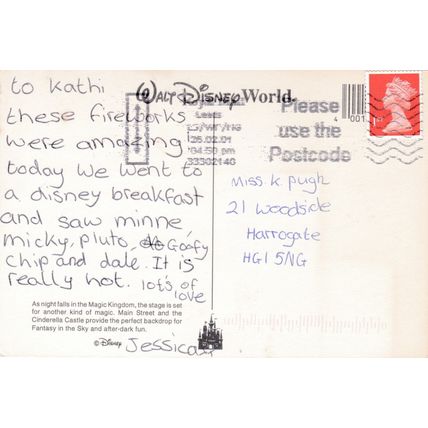 to Kathi
these fireworks
were amazing
today we went to
a disney breakfast
and saw minne
micky, pluto, Goofy
chip and dale. It is
really hot. lot's of
love
Jessica
As night falls in the Magic Kingdom, the stage is set
for another kind of magic. Main Street and the
Cinderella Castle provide the perfect backdrop for
Fantasy in the Sky and after-dark fun.
©Disney
WALT DISNEY World.
Leeds
25.02.01
04:50 pm
33302140
Please
use the
Postcode
1st
Miss K Pugh
21 Woodside
Harrogate
HG1 5NG